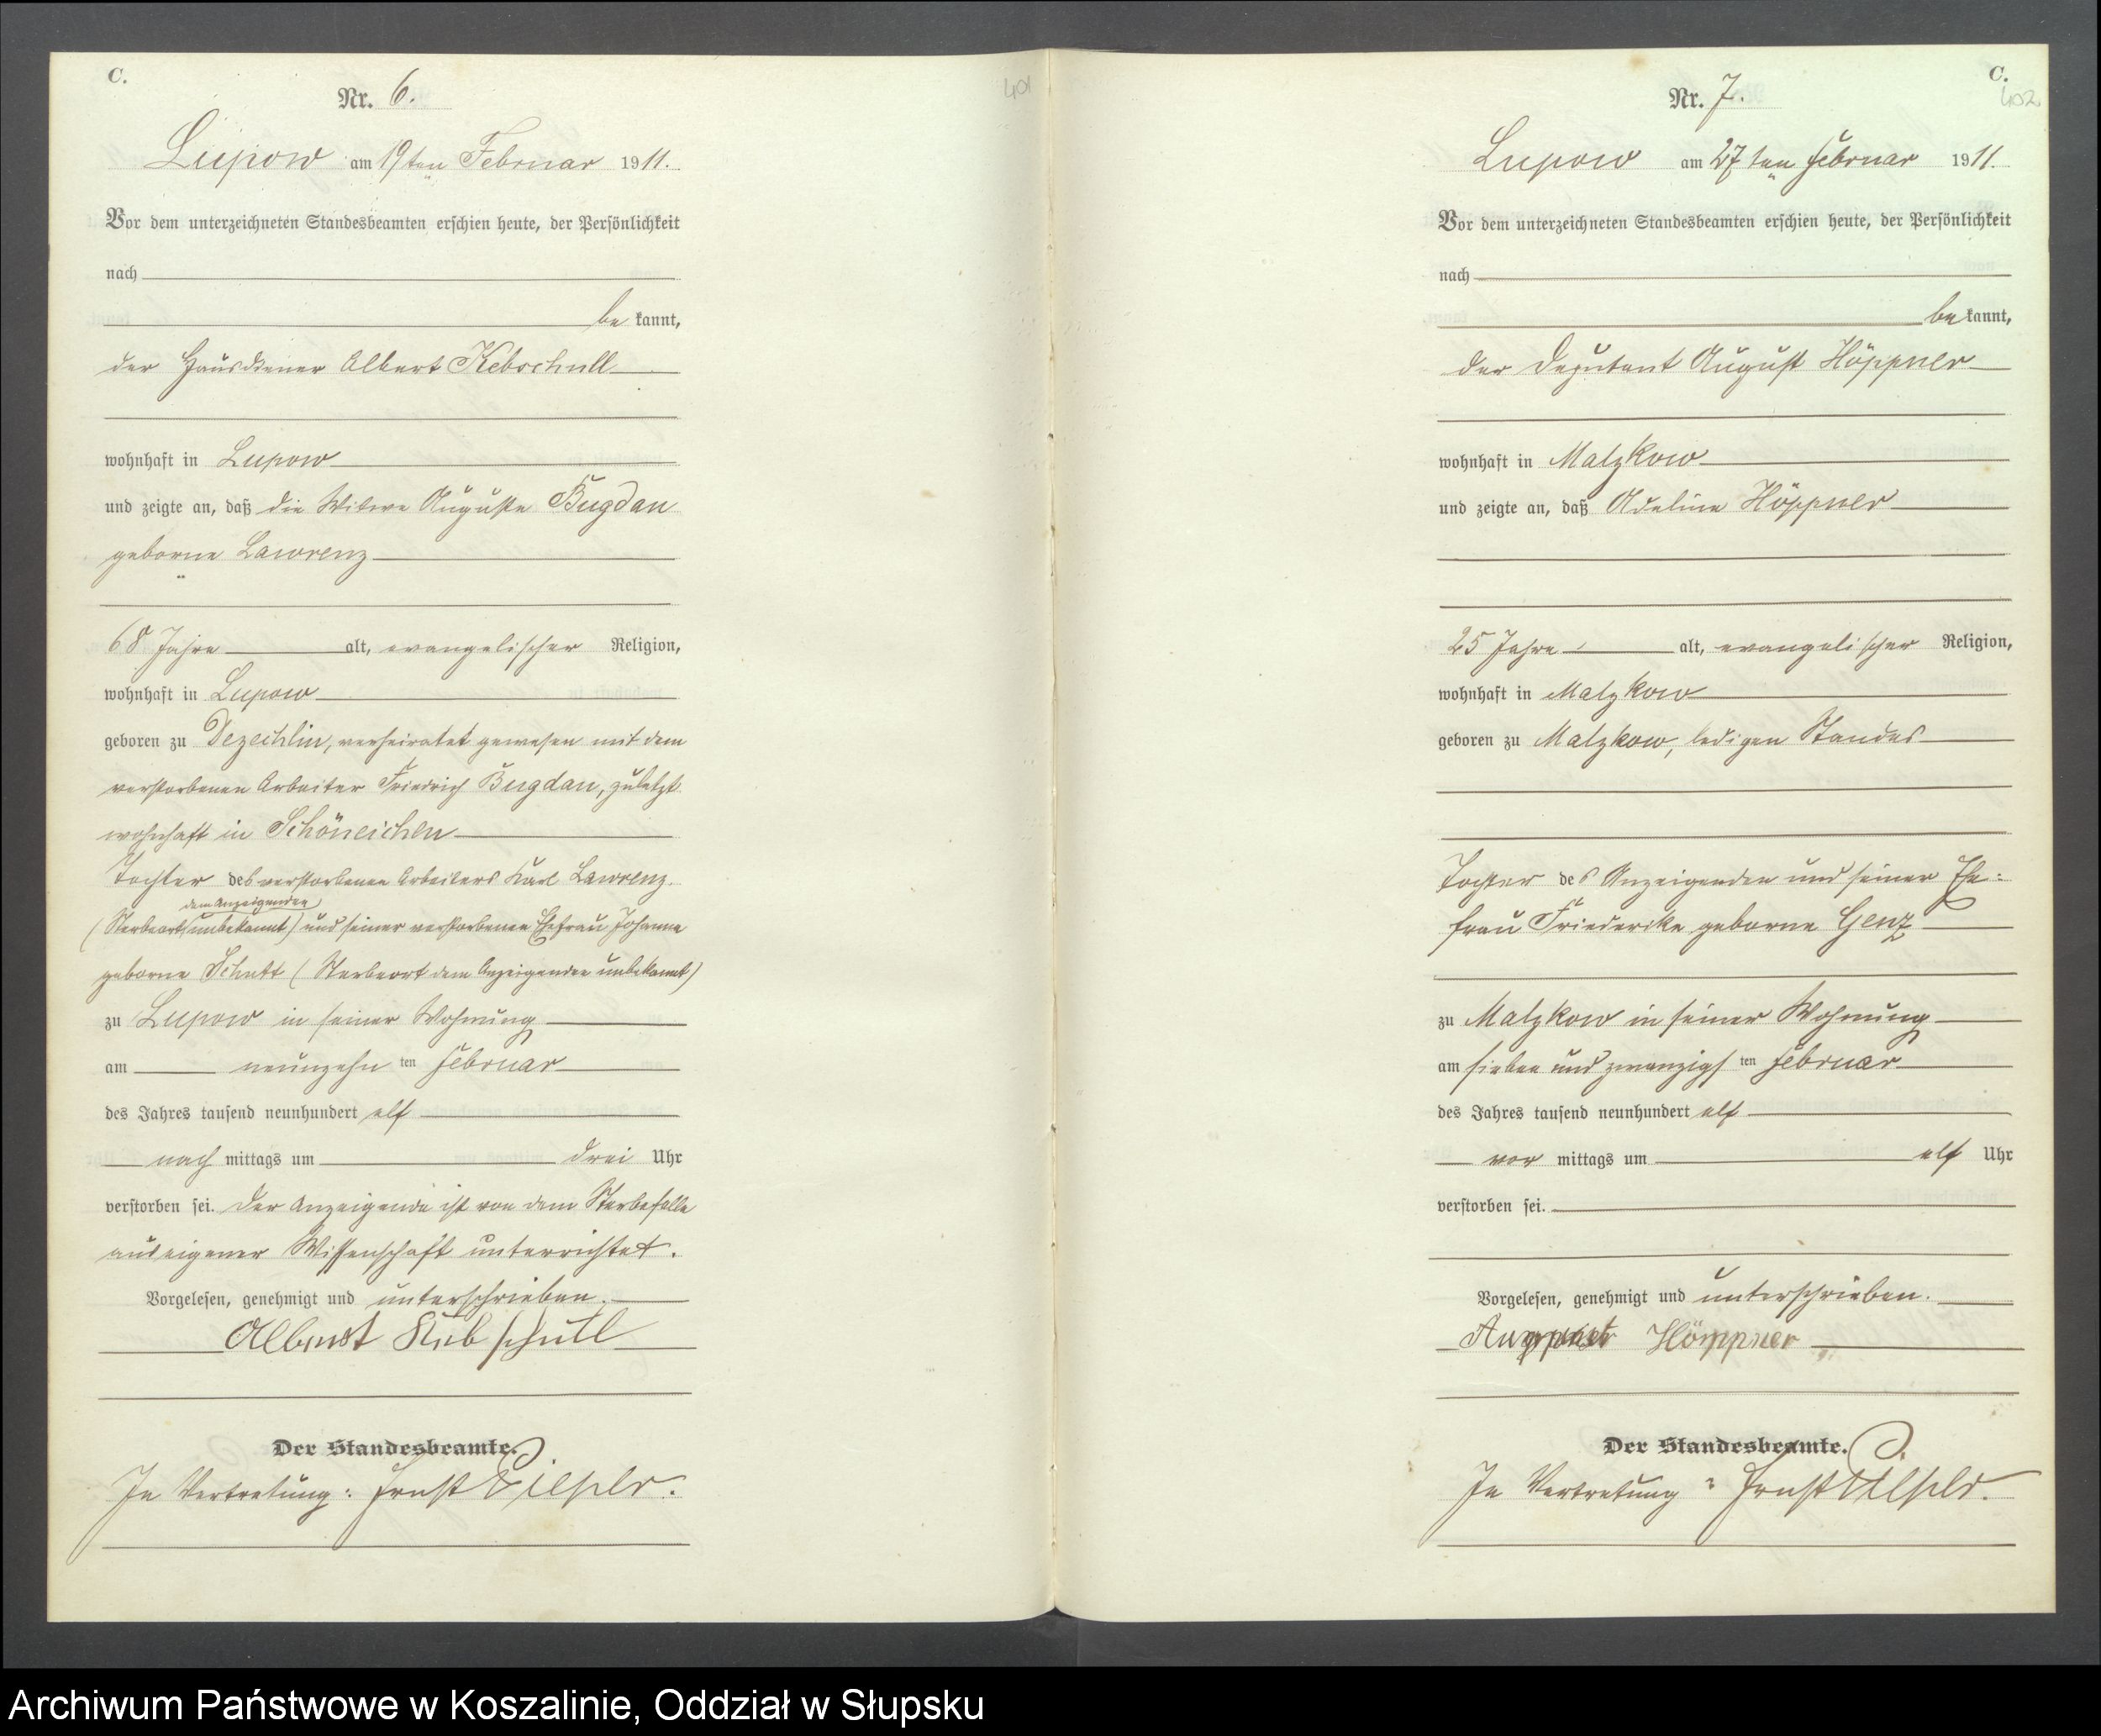 C.
Nr. 6.
401
Lupow am 19ten Februar 1911.
Vor dem unterzeichneten Standesbeamten erschien heute, der Persönlichkeit
nach
be kannt,
der Hausdiener Albert Kebschull
wohnhaft in Lupow
und zeigte an, daß die Witwe Auguste Bugdan
geborne Lawrenz
68 Jahre alt, evangelischer Religion,
wohnhaft in Lupow
geboren zu verheiratet gewesen mit dem
verstorbenen Arbeiter Friedrich Bugdan, zuletzt
wohnhaft in Schöneichen
Tochter des verstorbenen Arbeiters Karl Lawrenz
dem Anzeigenden
(Sterbeort unbekannt) und seiner verstorbenen Ehefrau Johanna
geborne (Sterbeort dem Anzeigenden unbekannt)
zu Lupow in seiner Wohnung
am neunzehn ten Februar
des Jahres tausend neunhundert elf
nach mittags um drei Uhr
verstorben sei. Der Anzeigende ist von dem Sterbefalle
aus eigener Wissenschaft unterrichtet.
Vorgelesen, genehmigt und unterschrieben.
Albert Kebschull
Der Standesbeamte.
In Vertretung: Ernst
C.
Nr. 7.
402
Lupow am 27ten Februar 1911.
Vor dem unterzeichneten Standesbeamten erschien heute, der Persönlichkeit
nach
be kannt,
der Deputant August Höppner
wohnhaft in Malzkow
und zeigte an, daß Adeline Höppner
25 Jahre alt, evangelischer Religion,
wohnhaft in Malzkow
geboren zu Malzkow, ledigen Standes
Tochter des Anzeigenden und seiner Ehe-
frau Friederike geborne Genz
zu Malzkow in seiner Wohnung
am sieben und zwanzigs ten Februar
des Jahres tausend neunhundert elf
vor mittags um elf Uhr
verstorben sei.
Vorgelesen, genehmigt und unterschrieben.
August Höppner
Der Standesbeamte.
In Vertretung: Ernst
Archiwum Państwowe w Koszalinie, Oddział w Słupsku